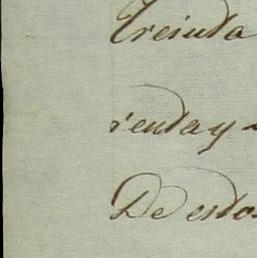 Treinta
renta y
De estos